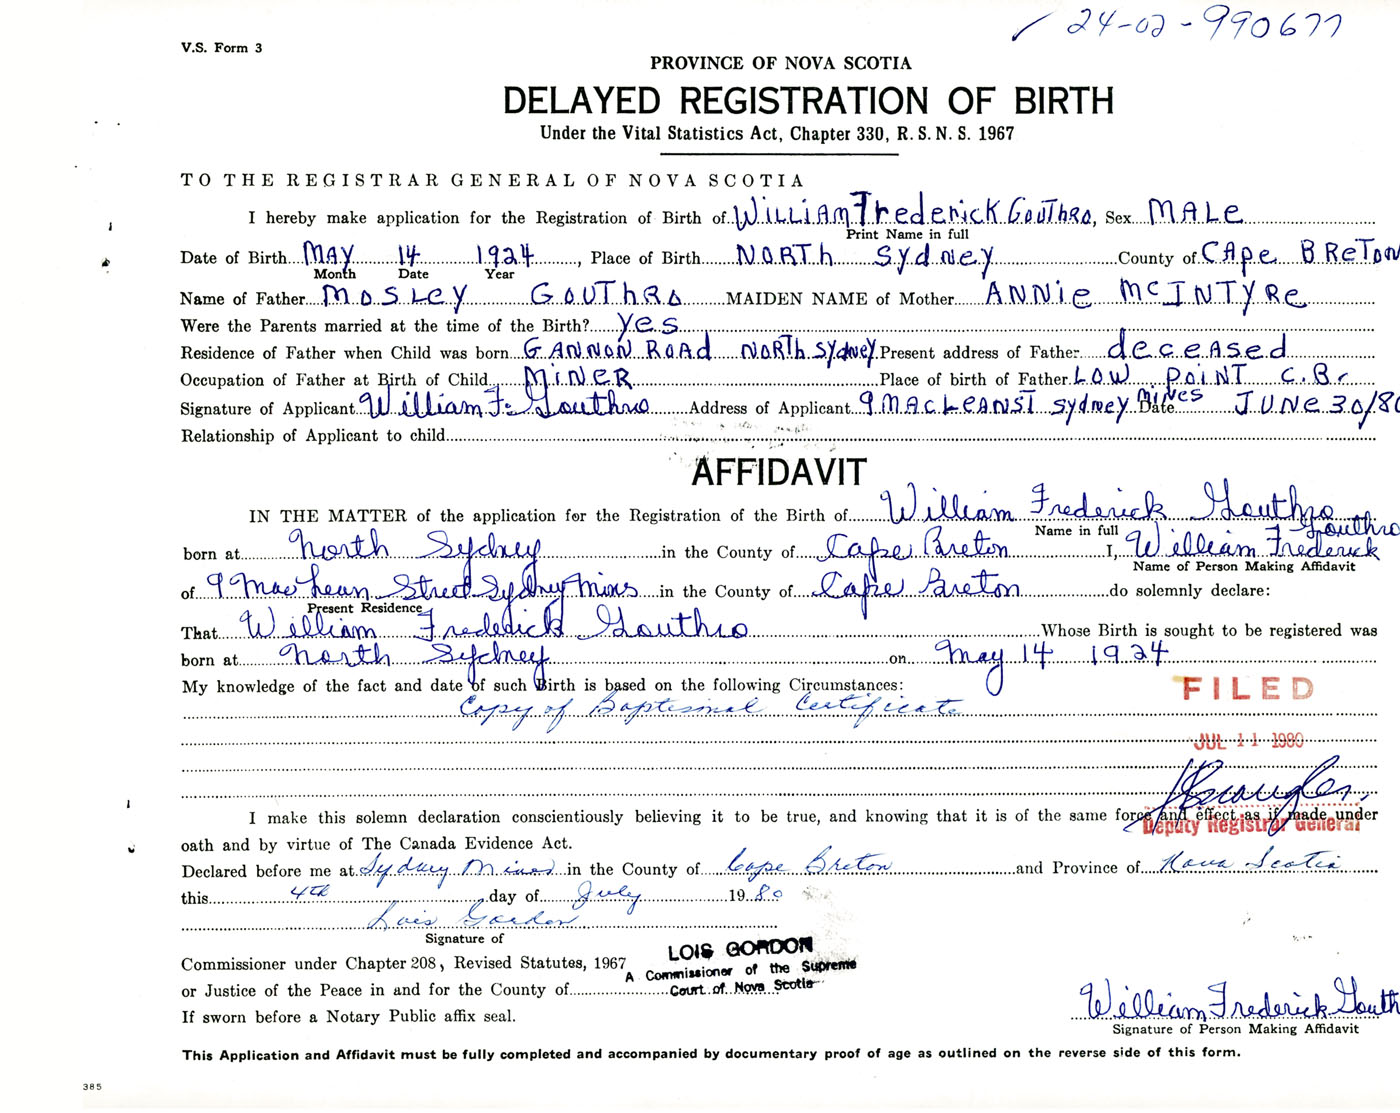 24-02-990677
V.S. Form 3
PROVINCE OF NOVA SCOTIA
DELAYED REGISTRATION OF BIRTH
Under the Vital Statistics Act, Chapter 330, R.S.N.S. 1967
TO THE REGISTRAR GENERAL OF NOVA SCOTIA
I hereby make application for the Registration of Birth of William Frederick Gouthro, Sex MALE
Print Name in full
Date of Birth MAY 14 1924, Place of Birth NORTH SYDNEY County of CAPE BRETON
Month Date Year
Name of Father MOSLEY GOUTHRO MAIDEN NAME of Mother ANNIE MCINTYRE
Were the Parents married at the time of the Birth? Yes
Residence of Father when Child was born GANNON ROAD NORTH SYDNEY Present address of Father deceased
Occupation of Father at Birth of Child MINER Place of birth of Father LOW POINT C.B.
Signature of Applicant William F. Gouthro Address of Applicant 9 MACLEAN ST SYDNEY MINES Date JUNE 30/80
Relationship of Applicant to child
AFFIDAVIT
IN THE MATTER of the application for the Registration of the Birth of William Frederick Gouthro
Name in full
born at North Sydney in the County of Cape Breton I, William Frederick Gouthro
Name of Person Making Affidavit
of 9 MacLean Street Sydney Mins in the County of Cape Breton do solemnly declare:
Present Residence
That William Frederick Gouthro Whose Birth is sought to be registered was
born at North Sydney on May 14 1924
My knowledge of the fact and date of such Birth is based on the following Circumstances:
Copy of Baptismal Certificate
FILED
JUL 11 1980
Deputy Registrar General
I make this solemn declaration conscientiously believing it to be true, and knowing that it is of the same force and effect as if made under
oath and by virtue of The Canada Evidence Act.
Declared before me at Sydney Mines in the County of Cape Breton and Province of Nova Scotia
this 4th day of July 1980
Lois Gordon
Signature of
Commissioner under Chapter 208, Revised Statutes, 1967
or Justice of the Peace in and for the County of
If sworn before a Notary Public affix seal.
LOIS GORDON
A Commissioner of the Supreme
Court of Nova Scotia
William Frederick Gouth
Signature of Person Making Affidavit
This Application and Affidavit must be fully completed and accompanied by documentary proof of age as outlined on the reverse side of this form.
385